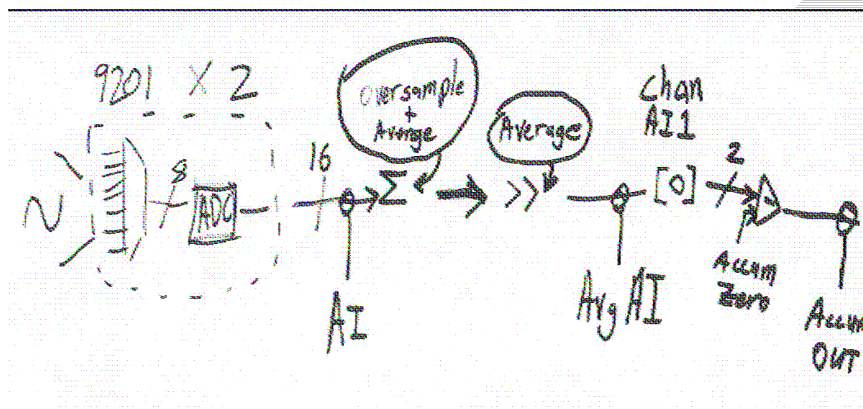 9201 X 2
8
ADC
16
AI
Oversample
+
Average
Σ
>>
Average
Avg AI
Chan
AI1
[0]
2
Accum
Zero
Accum
OUT